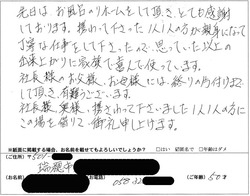 先日は、お風呂のリホームをして頂き、とても感謝
しております。携わって下さった1人1人の方が親身になって
丁寧な仕事をして下さったので、思っていた以上の
出来上がりに家族で喜んで使っています。
社長様のお父様、お母様には、終りの片付けまで
して頂き、有難うございます。
社長様、奥様、携さわって下さいました1人1人の方に
この場を借りて御礼申し上げます。
※紙面に掲載する場合、お名前を載せてもよろしいでしょうか？ □はい 頭文字まで □年齢はダメ
(ご住所) 〒501-
瑞穂市
(お名前) (お電話) 058-32 (ご年齢) 50才